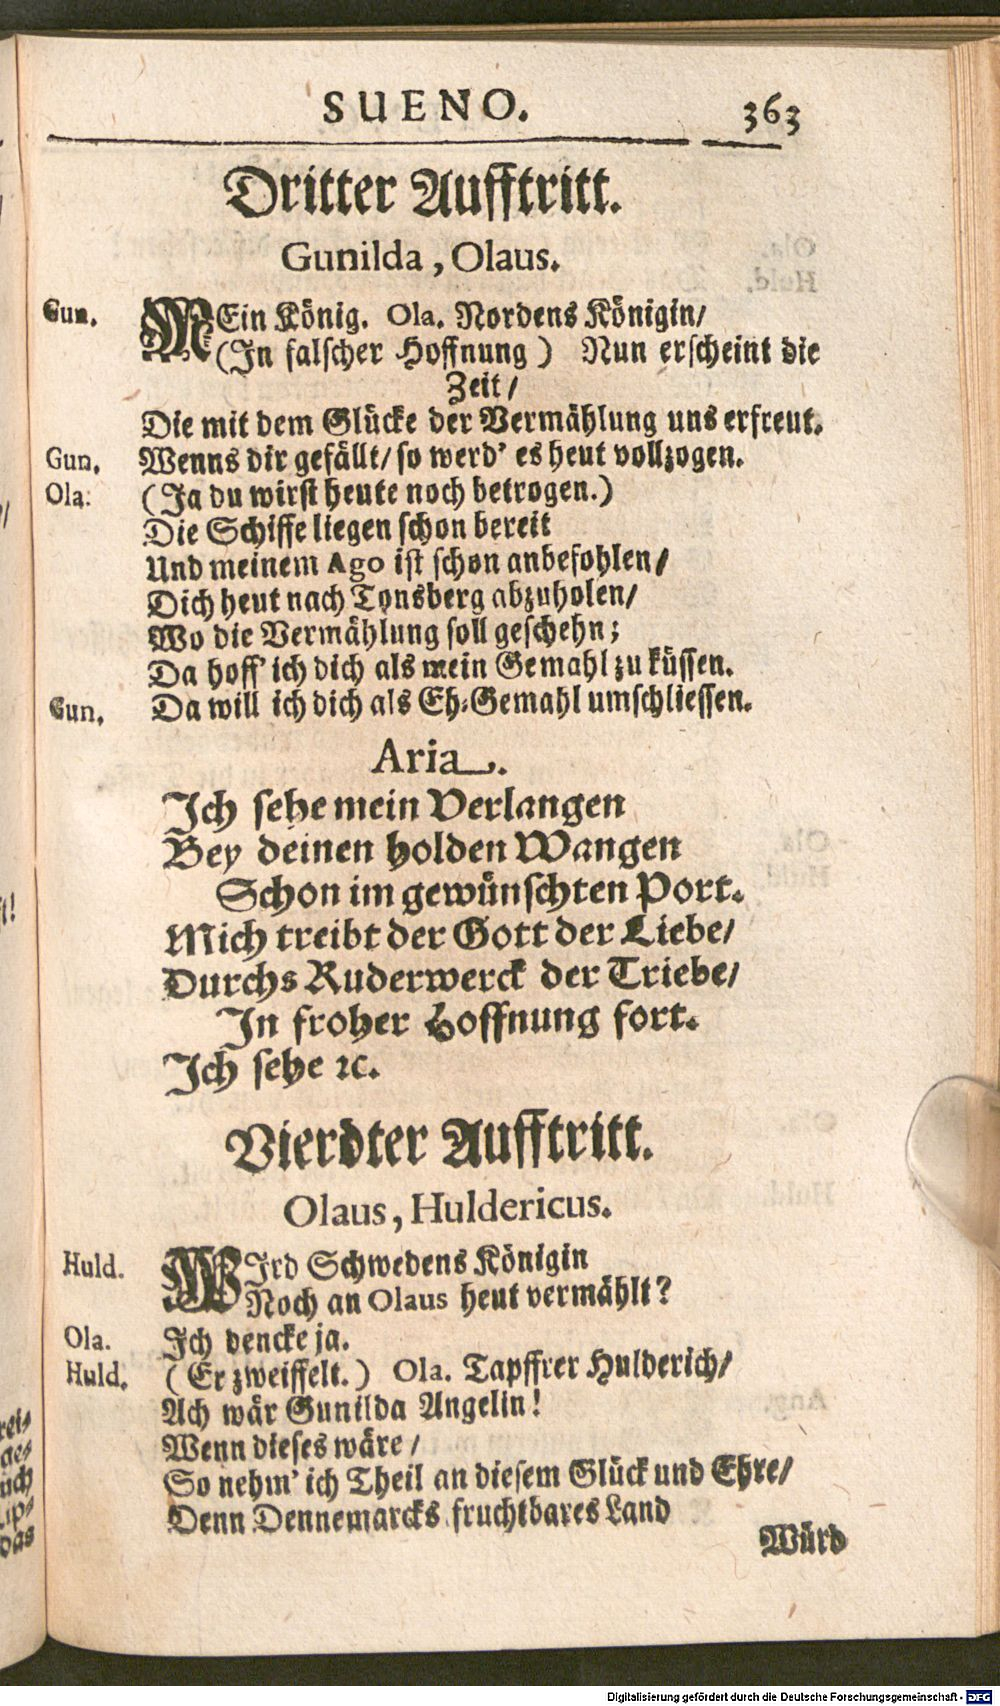 SUENO. 363
Dritter Aufftritt.
Gunilda, Olaus.
Gun. MEin König. Ola. Nordens Königin/
(In falscher Hoffnung) Nun erscheint die
Zeit/
Die mit dem Glücke der Vermählung uns erfreut.
Gun. Wenns dir gefällt/ so werd' es heut vollzogen.
Ola. (Ja du wirst heute noch betrogen.)
Die Schiffe liegen schon bereit
Und meinem Ago ist schon anbefohlen/
Dich heut nach Tonsberg abzuholen/
Wo die Vermählung soll geschehn;
Da hoff' ich dich als mein Gemahl zu küssen.
Gun. Da will ich dich als Eh-Gemahl umschliessen.
Aria.
Ich sehe mein Verlangen
Bey deinen holden Wangen
Schon im gewünschten Port.
Mich treibt der Gott der Liebe/
Durchs Ruderwerck der Triebe/
In froher Hoffnung fort.
Ich sehe ꝛc.
Vierdter Aufftritt.
Olaus, Huldericus.
Huld. WIrd Schwedens Königin
Noch an Olaus heut vermählt?
Ola. Ich dencke ja.
Huld. (Er zweiffelt.) Ola. Tapffrer Hulderich/
Ach wär Gunilda Angelin!
Wenn dieses wäre/
So nehm' ich Theil an diesem Glück und Ehre/
Denn Dennemarcks fruchtbares Land
Würd
t!
reis
ges
uch
das
Digitalisierung gefördert durch die Deutsche Forschungsgemeinschaft - DFG